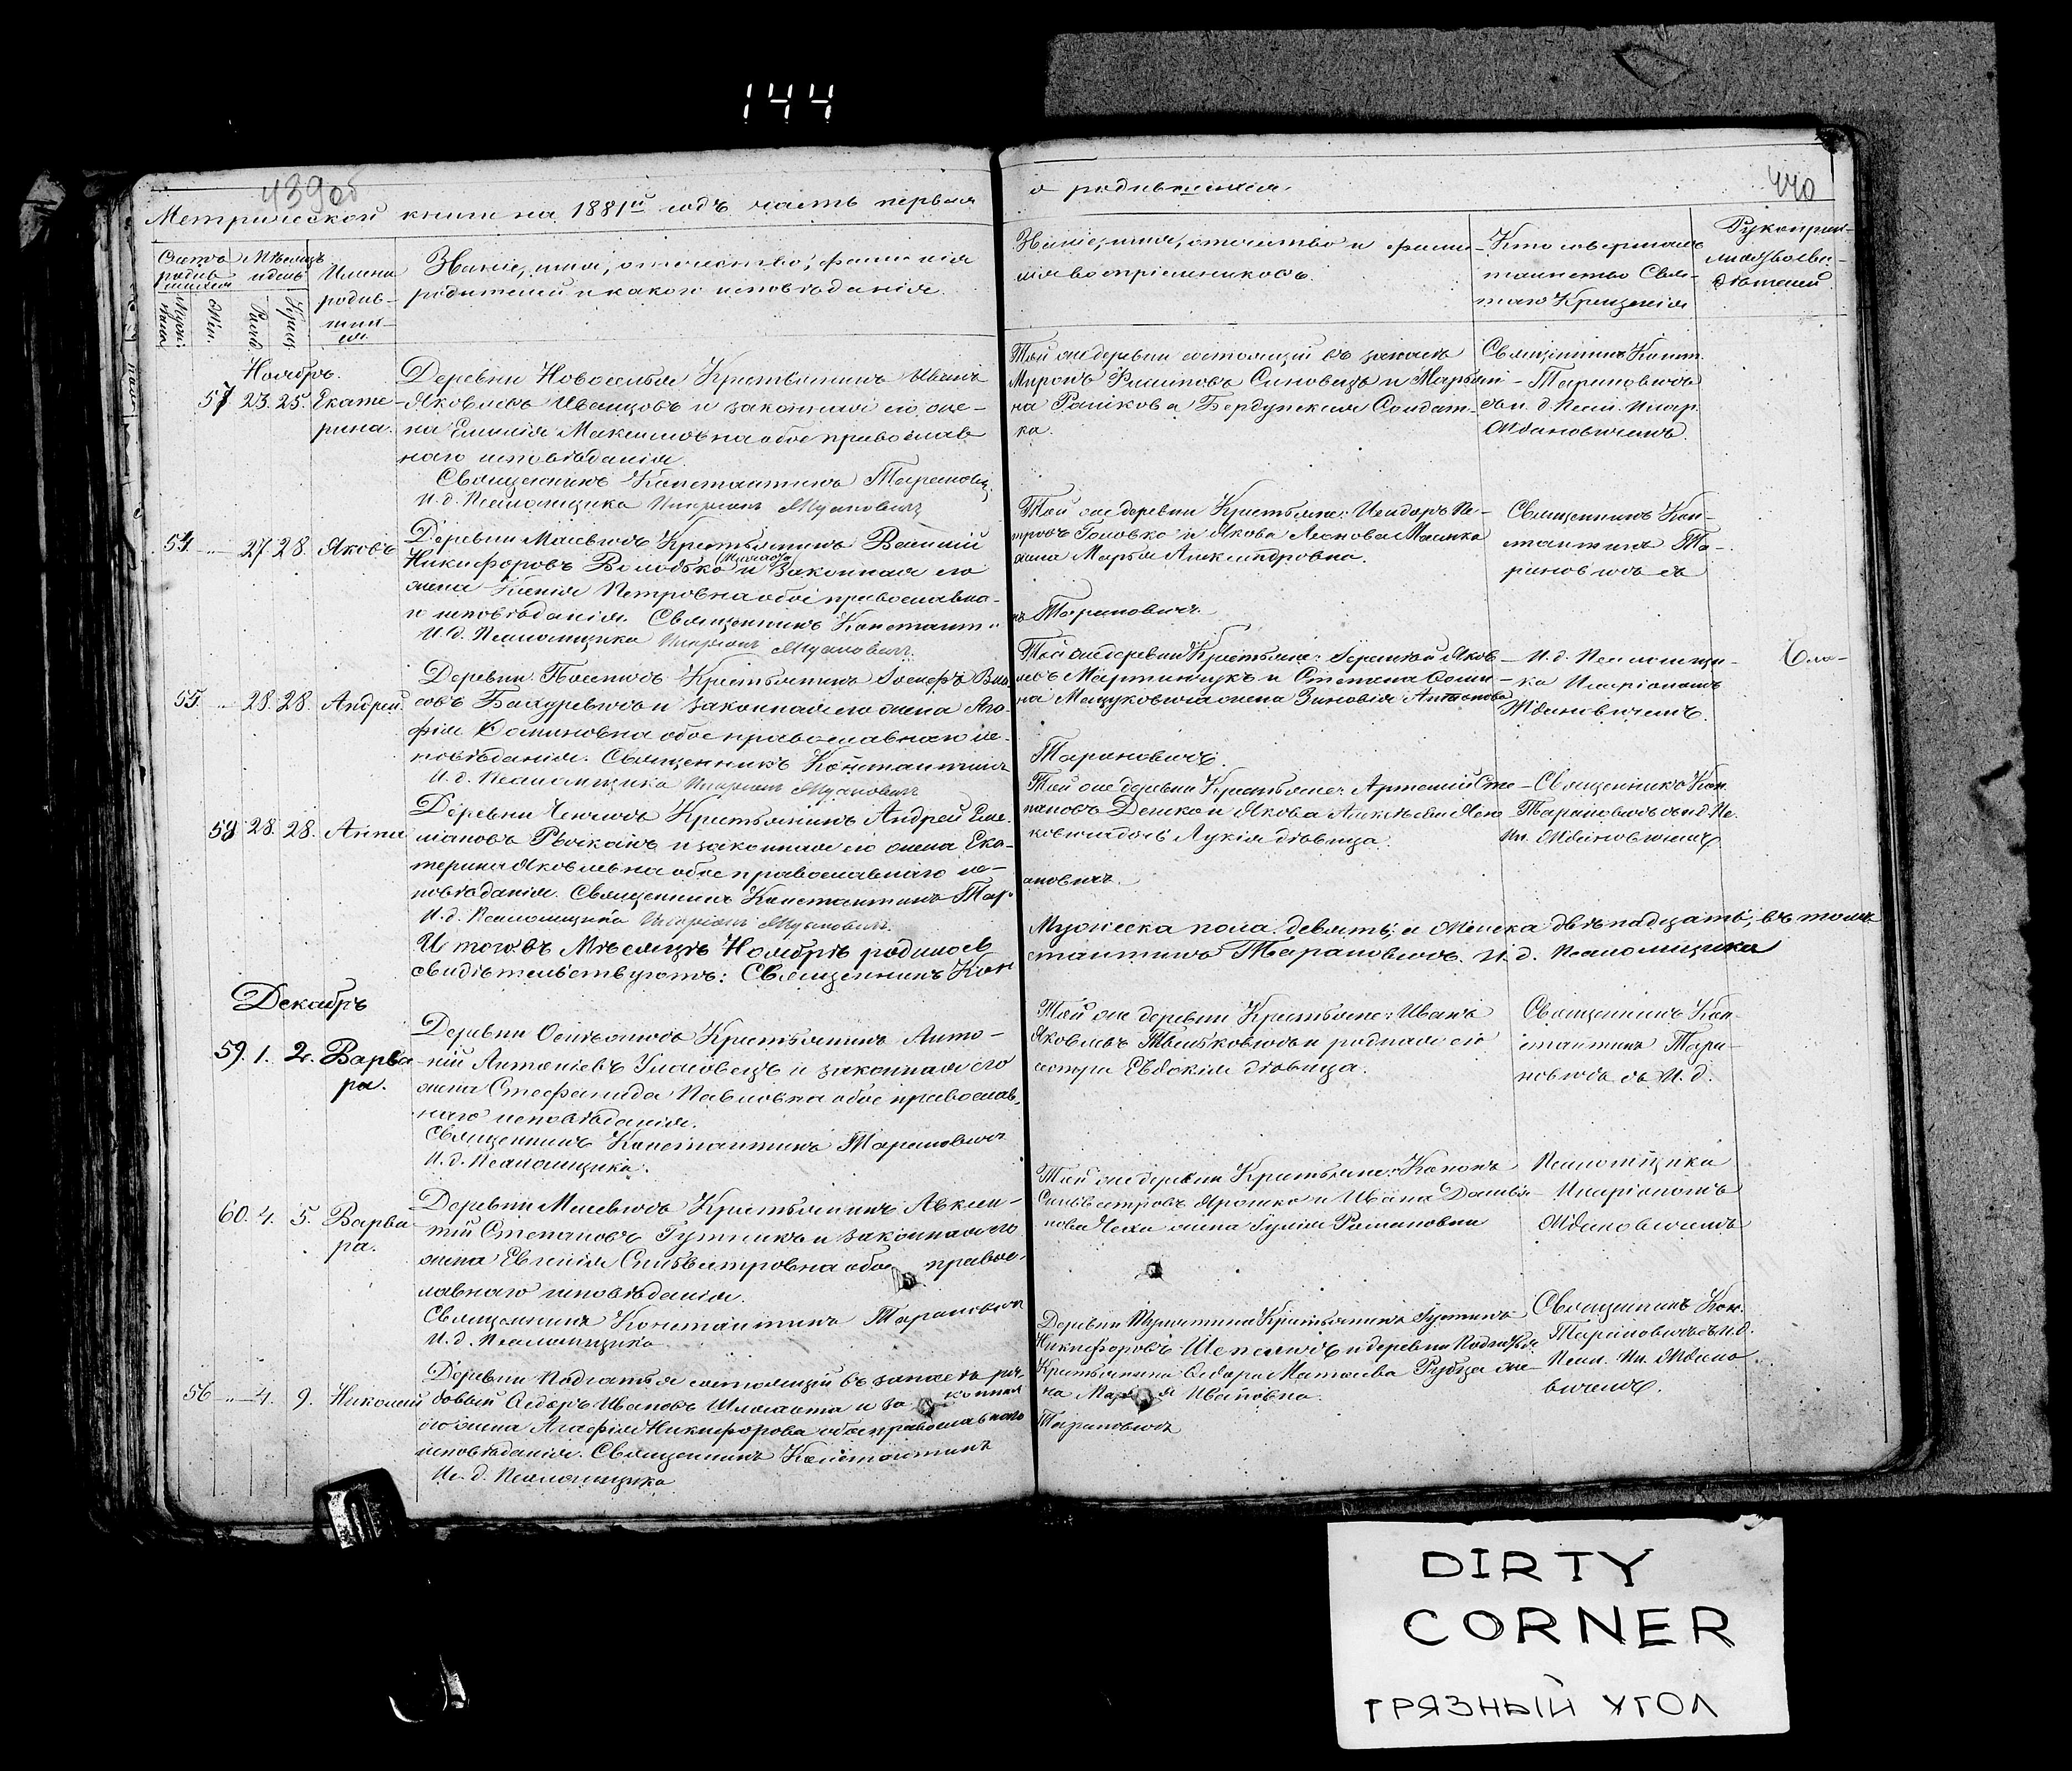 144
439об
Метрической книги на 1881й годъ часть первая
о родившихся.
440
Счетъ родив-шихся
Мѣсяцъ и день
Имена родив-ших-ся.
Званіе, имя, отчество, фамилія
родителей и какого исповѣданія.
Званіе, имя, отчество и фами-
лія воспріемниковъ.
Кто совершалъ
таинство Свя-
таго Крещенія
Рукопри-
свидѣтелей
Мужес.
Жен.
Рожд.
Крещ.
Ноябрь.
57 23. 25. Екате-
рина.
Деревни Новоселья Крестьянинъ Иванъ
Яковлевъ Иванцовъ и законная его же-
на Емилія Максимовна обое православ
наго исповѣданія.
Священникъ Константинъ Тарановичъ
И. д. Псаломщика Иларіонъ Ждановичъ
Той же деревни состоящій въ запасѣ
Миронъ Филиповъ Синовецъ и Марья
ка.
Священникъ Конст.
Тарановичъ
съ и. д. Псал. Илар.
Ждановичемъ.
54. „ 27 28. Яковъ
Деревни Малевичъ Крестьянинъ Василій
Никифоровъ Володько и законная его
жена Ксенія Петровна обое православна-
го исповѣданія. Священникъ Констант-
И. д. Псаломщика Иларіонъ Ждановичъ.
Той же деревни Крестьяне: Исидоръ Пе-
тровъ Головко и Якова Леонова
жена Марья Александровна.
нъ Тарановичъ
Священникъ Кон-
стантинъ Та-
рановичъ съ
55. „ 28. 28. Андрей.
Деревни Крестьянинъ Іосифъ
и законная его жена Ага-
фія Фоминовна обое православнаго ис-
повѣданія. Священникъ Константинъ
И. д. Псаломщика Иларіонъ Ждановичъ
Той же деревни Крестьяне: Яков-
левъ Мартинчукъ и Степана
на Мацуковича жена Зиновія Антонова
Тарановичъ.
И. д. Псаломщи-
ка Иларіономъ
Ждановичемъ.
58 28. 28. Анна
Деревни Крестьянинъ Андрей Еме-
ліановъ и законная его жена Ека-
терина Яковлевна обое православнаго ис-
повѣданія. Священникъ Константинъ Тар-
И. д. Псаломщика Иларіонъ Ждановичъ.
Той же деревни Крестьяне: Артемій Сте-
пановъ Демко и Якова
дочь Лукія дѣвица.
ановичъ.
Священникъ Кон.
Тарановичъ съ и. д. Пс.
Ил. Ждановичемъ
Итого въ Мѣсяцѣ Ноябрѣ родилось
Мужеска пола девять, а Женска двѣнадцать, въ томъ
свидѣтельствуютъ: Священникъ Кон
стантинъ Тарановичъ. И. д. Псаломщика
Декабрь
59. 1. 2. Варва
ра.
Деревни Крестьянинъ Анто-
ній Антоніевъ Улановецъ и законная его
жена Стефанида Павловна обое православ-
наго исповѣданія.
Священникъ Константинъ Тарановичъ
И. д. Псаломщика.
Той же деревни Крестьяне: Иванъ
Яковлевъ и родная его
сестра Евдокія дѣвица.
Священникъ Кон-
стантинъ Тара-
новичъ съ И. д.
60. 4. 5. Варва
ра.
Деревни Малевичъ Крестьянинъ Авксен-
тій Степановъ Гутникъ и законная его
жена Евгенія Сильвестровна обое правос-
лавнаго исповѣданія.
Священникъ Константинъ Тарановичъ
И. д. Псаломщика
Той же деревни Крестьяне: Кононъ
Сильвестровъ Ярошко и Ивана
жена Іулія Романовна
Псаломщика
Иларіономъ
Ждановичемъ
56 „ 4. 9. Николай
Деревни Подлатья состоящій въ запасѣ ря-
довый Ѳедоръ Ивановъ и законная
его жена Агафія Никифорова обое православнаго
исповѣданія. Священникъ Константинъ
И. д. Псаломщика
Деревни Крестьянинъ Іустинъ
Никифоровъ и деревни Подлатья
Крестьянина Ѳедора Матвѣева Рубца же-
на Марія Ивановна.
Тарановичъ
Священникъ Кон.
Тарановичъ съ и. д.
Псал. Ил. Ждано
вичемъ.
DIRTY
CORNER
ГРЯЗНЫЙ УГОЛ